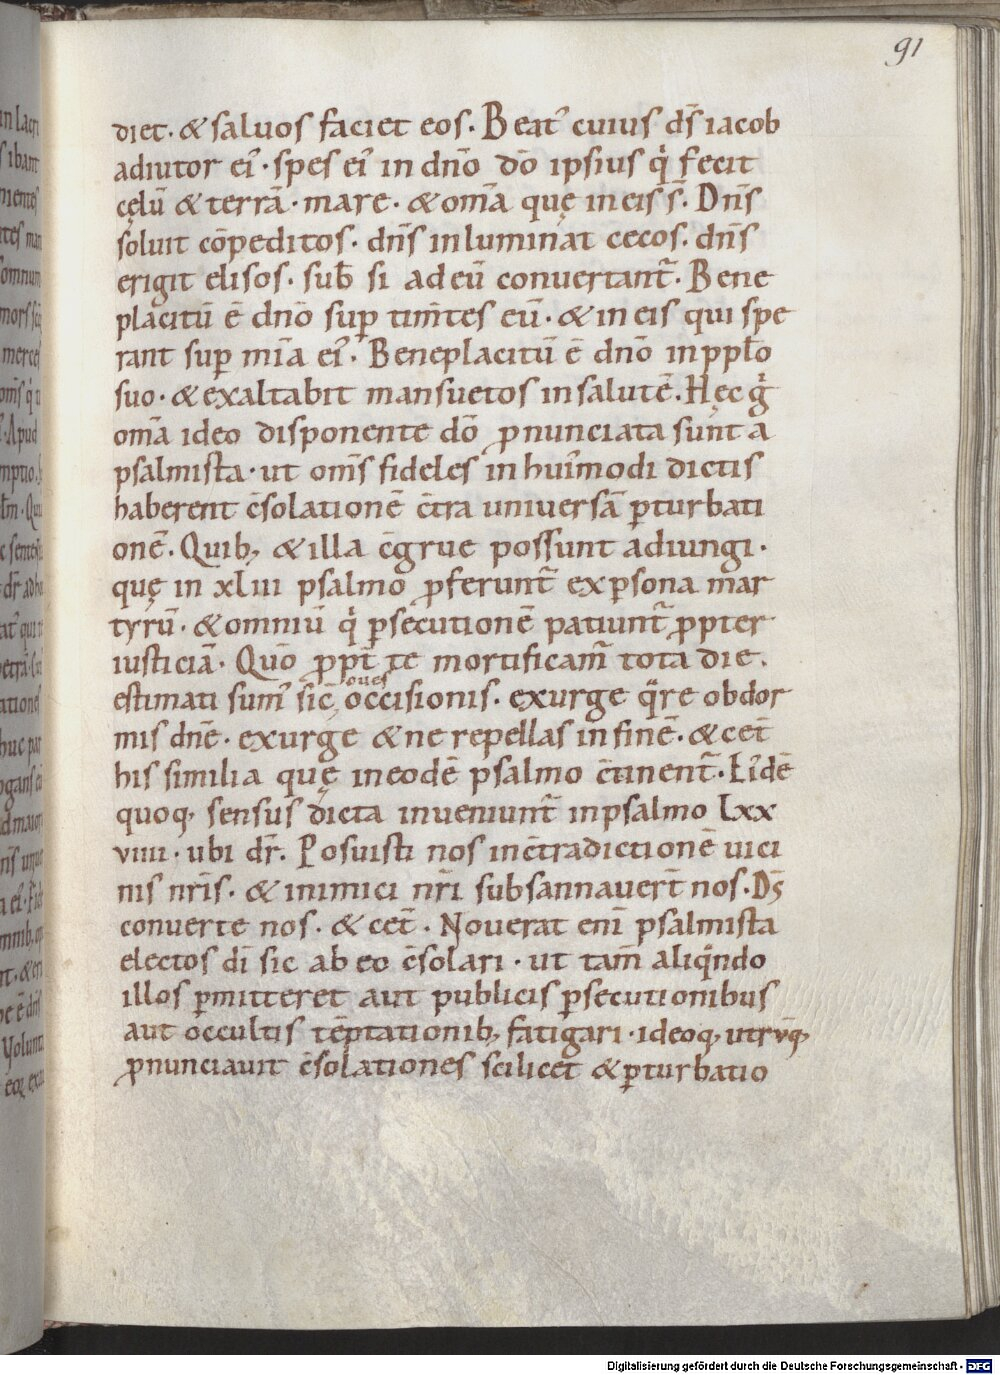 91
diet · & saluos faciet eos · Beat᾽ cuius ds̄ iacob
adiutor ei᾽ · spes ei᾽ in dnō dō ipsius qͥ fecit
cęlū & terrā · mare · & om̄a quę in eis s̄. Dn̄s
soluit cōpeditos · dn̄s inluminat cecos. dn̄s
erigit elisos · sub̄ si ad eū conuertant᷑. Bene
placitū ē dnō suꝑ tim̄tes eū · & in eis qui spe
rant suꝑ mīa ei᾽. Beneplacitū ē dnō in ppl̄o
suo · & exaltabit mansuetos in salutē. Hęc gͥ
om̄a ideo disponente dō ꝓnunciata sunt a
psalmista · ut om̄s fideles in hui᾽modi dictis
haberent c̄solationē c̄tra uniuersā ꝑturbati
onē. Quib; & illa c̄grue possunt adiungi ·
quę in xliii psalmo ꝓferunt᷑ ex ꝑsona mar
tyrū · & omniū qͥ ꝑsecutionē patiunt᷑ ꝓpter
iusticiā · Quō ꝓpt̄ te mortificam᷑ tota die.
oues
estimati sum᾽ sic̄ occisionis · exurge qͣre obdor
mis dn̄e · exurge & ne repellas in finē · & cet̄
his similia quę in eodē psalmo c̄tinent᷑. Ei᾽dē
quoq; sensus dicta inueniunt᷑ in psalmo lxx
viiii · ubi dr̄. Posuisti nos in c̄tradictionē uici
nis nr̄is · & inimici nr̄i subsannauer̄t nos · Ds̄
conuerte nos · & cet̄ · Nouerat enī psalmista
electos dī sic ab eo c̄solari · ut tam̄ aliqͣndo
illos ꝑmitteret aut publicis ꝑsecutionibus
aut occultis tēptationib; fatigari · ideoq; utrūq;
ꝓnunciauit c̄solationes scilicet & ꝑturbatio
Digitalisierung gefördert durch die Deutsche Forschungsgemeinschaft - DFG